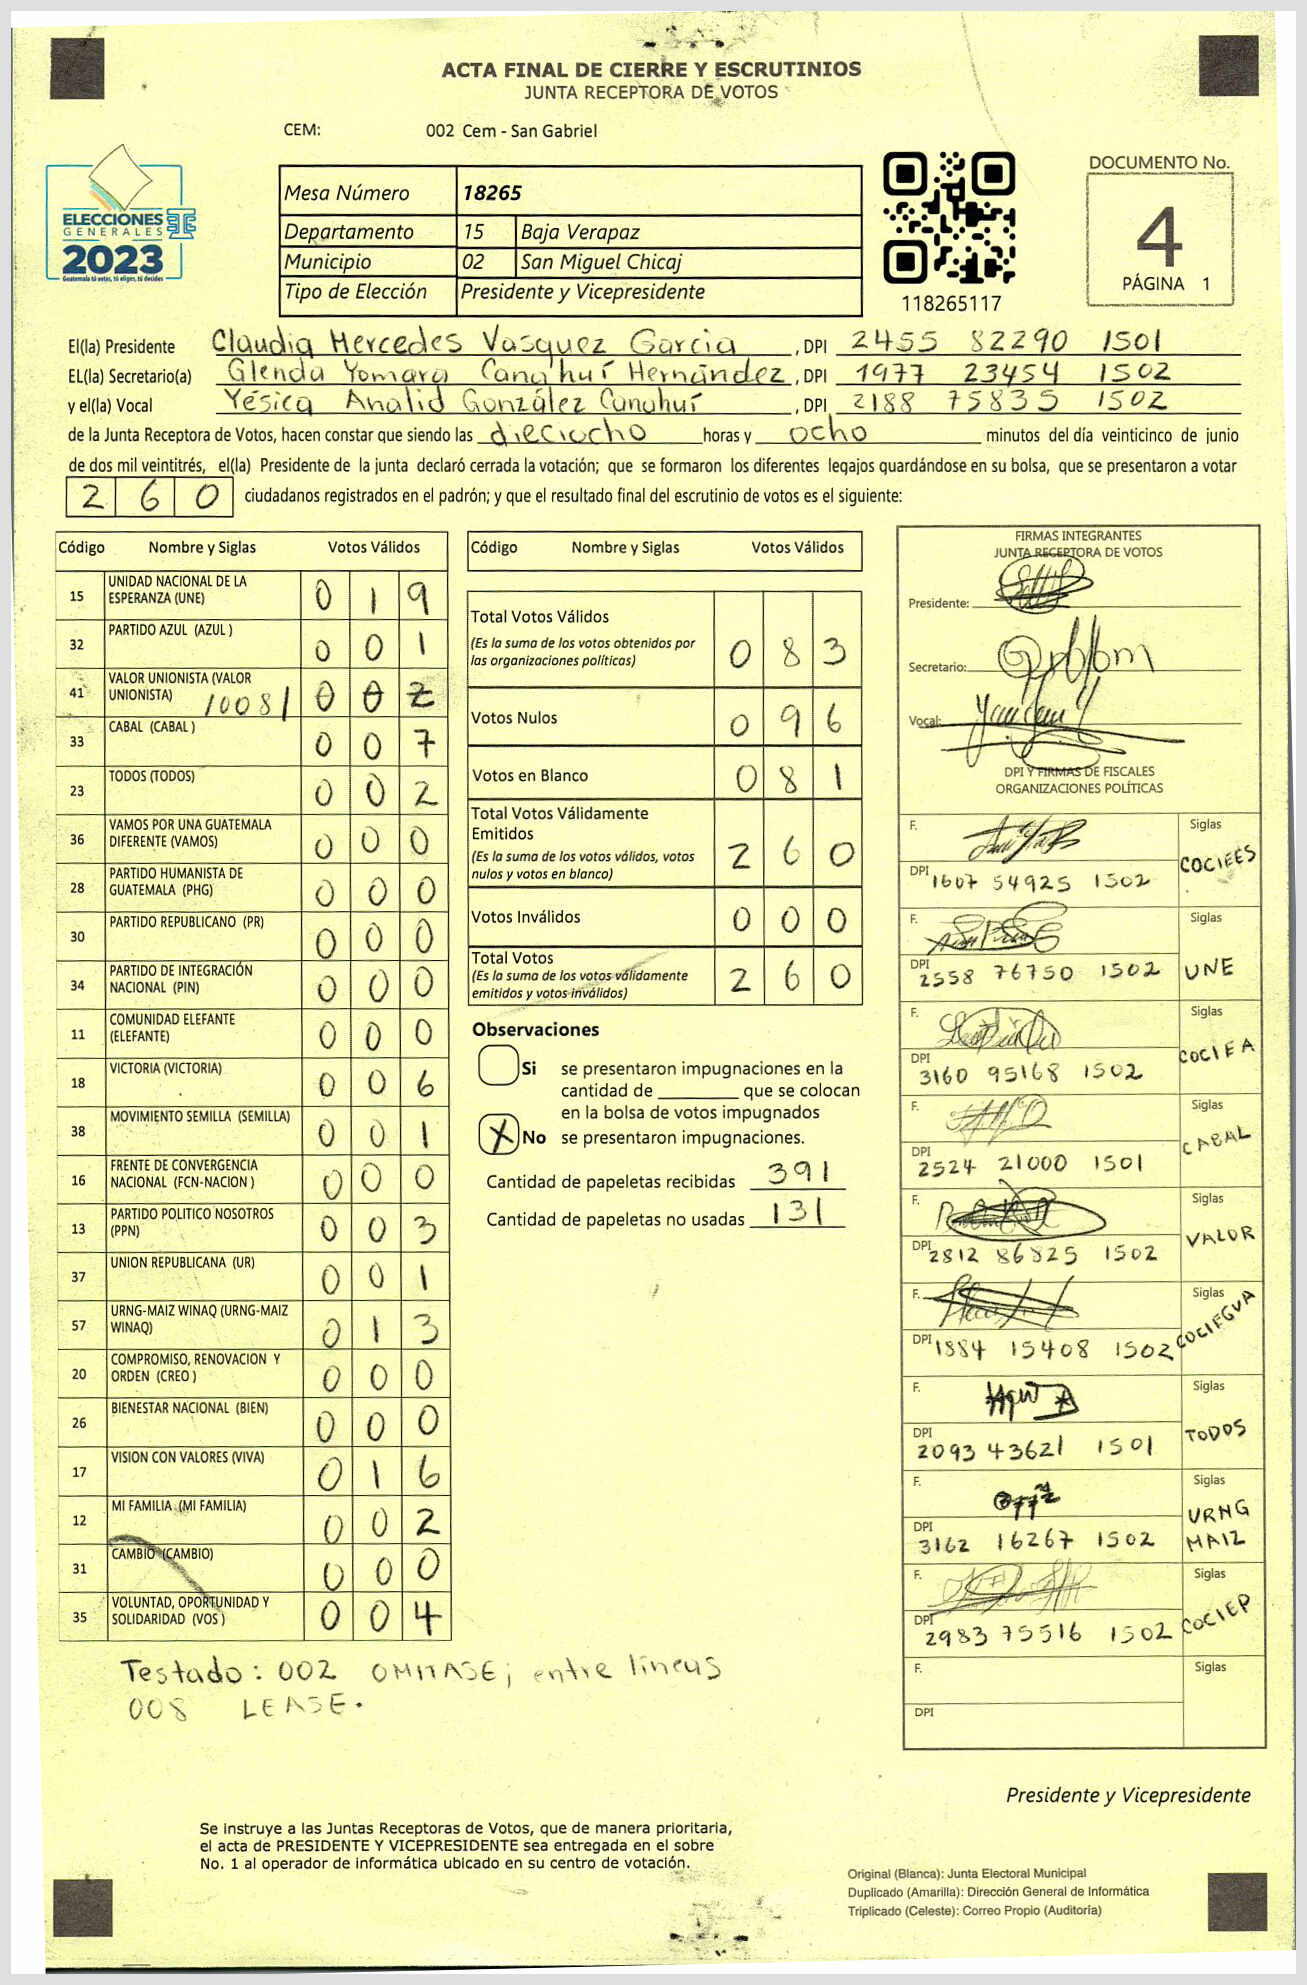 ACTA FINAL DE CIERRE Y ESCRUTINIOS
JUNTA RECEPTORA DE VOTOS
CEM: 002 Cem - San Gabriel
ELECCIONES
GENERALES
2023
Guatemala tú votas, tú eliges, tú decides
Mesa Número 18265
Departamento 15 Baja Verapaz
Municipio 02 San Miguel Chicaj
Tipo de Elección Presidente y Vicepresidente
118265117
DOCUMENTO No.
4
PÁGINA 1
El(la) Presidente Claudia Mercedes Vasquez Garcia , DPI 2455 82290 1501
EL(la) Secretario(a) Glenda Yomara Cana'huí Hernández , DPI 1977 23454 1502
y el(la) Vocal Yésica Analid González Canahuí , DPI 2188 75835 1502
de la Junta Receptora de Votos, hacen constar que siendo las dieciocho horas y ocho minutos del día veinticinco de junio
de dos mil veintitrés, el(la) Presidente de la junta declaró cerrada la votación; que se formaron los diferentes legajos guardándose en su bolsa, que se presentaron a votar
260 ciudadanos registrados en el padrón; y que el resultado final del escrutinio de votos es el siguiente:
Código Nombre y Siglas Votos Válidos
15 UNIDAD NACIONAL DE LA ESPERANZA (UNE) 019
32 PARTIDO AZUL (AZUL ) 001
41 VALOR UNIONISTA (VALOR UNIONISTA) /008/ 002
33 CABAL (CABAL ) 007
23 TODOS (TODOS) 002
36 VAMOS POR UNA GUATEMALA DIFERENTE (VAMOS) 000
28 PARTIDO HUMANISTA DE GUATEMALA (PHG) 000
30 PARTIDO REPUBLICANO (PR) 000
34 PARTIDO DE INTEGRACIÓN NACIONAL (PIN) 000
11 COMUNIDAD ELEFANTE (ELEFANTE) 000
18 VICTORIA (VICTORIA) 006
38 MOVIMIENTO SEMILLA (SEMILLA) 001
16 FRENTE DE CONVERGENCIA NACIONAL (FCN-NACION ) 000
13 PARTIDO POLITICO NOSOTROS (PPN) 003
37 UNION REPUBLICANA (UR) 001
57 URNG-MAIZ WINAQ (URNG-MAIZ WINAQ) 013
20 COMPROMISO, RENOVACION Y ORDEN (CREO ) 000
26 BIENESTAR NACIONAL (BIEN) 000
17 VISION CON VALORES (VIVA) 016
12 MI FAMILIA (MI FAMILIA) 002
31 CAMBIO (CAMBIO) 000
35 VOLUNTAD, OPORTUNIDAD Y SOLIDARIDAD (VOS ) 004
Testado: 002 OMITASE; entre líneas
008 LEASE.
Código Nombre y Siglas Votos Válidos
Total Votos Válidos 083
(Es la suma de los votos obtenidos por
las organizaciones políticas)
Votos Nulos 096
Votos en Blanco 081
Total Votos Válidamente
Emitidos 260
(Es la suma de los votos válidos, votos
nulos y votos en blanco)
Votos Inválidos 000
Total Votos 260
(Es la suma de los votos válidamente
emitidos y votos inválidos)
Observaciones
Si se presentaron impugnaciones en la
cantidad de ________ que se colocan
en la bolsa de votos impugnados
X No se presentaron impugnaciones.
Cantidad de papeletas recibidas 391
Cantidad de papeletas no usadas 131
FIRMAS INTEGRANTES
JUNTA RECEPTORA DE VOTOS
Presidente:
Secretario:
Vocal:
DPI Y FIRMAS DE FISCALES
ORGANIZACIONES POLÍTICAS
F. Siglas
DPI 1607 54925 1502 COCIEES
F. Siglas
DPI 2558 76750 1502 UNE
F. Siglas
DPI 3160 95168 1502 COCIEA
F. Siglas
DPI 2524 21000 1501 CABAL
F. Siglas
DPI 2812 86825 1502 VALOR
F. Siglas
DPI 1884 15408 1502 COCIEGUA
F. Siglas
DPI 2093 43621 1501 TODOS
F. Siglas
DPI 3162 16267 1502 URNG MAIZ
F. Siglas
DPI 2983 75516 1502 COCIEP
F. Siglas
DPI
Presidente y Vicepresidente
Se instruye a las Juntas Receptoras de Votos, que de manera prioritaria,
el acta de PRESIDENTE Y VICEPRESIDENTE sea entregada en el sobre
No. 1 al operador de informática ubicado en su centro de votación.
Original (Blanca): Junta Electoral Municipal
Duplicado (Amarilla): Dirección General de Informática
Triplicado (Celeste): Correo Propio (Auditoría)